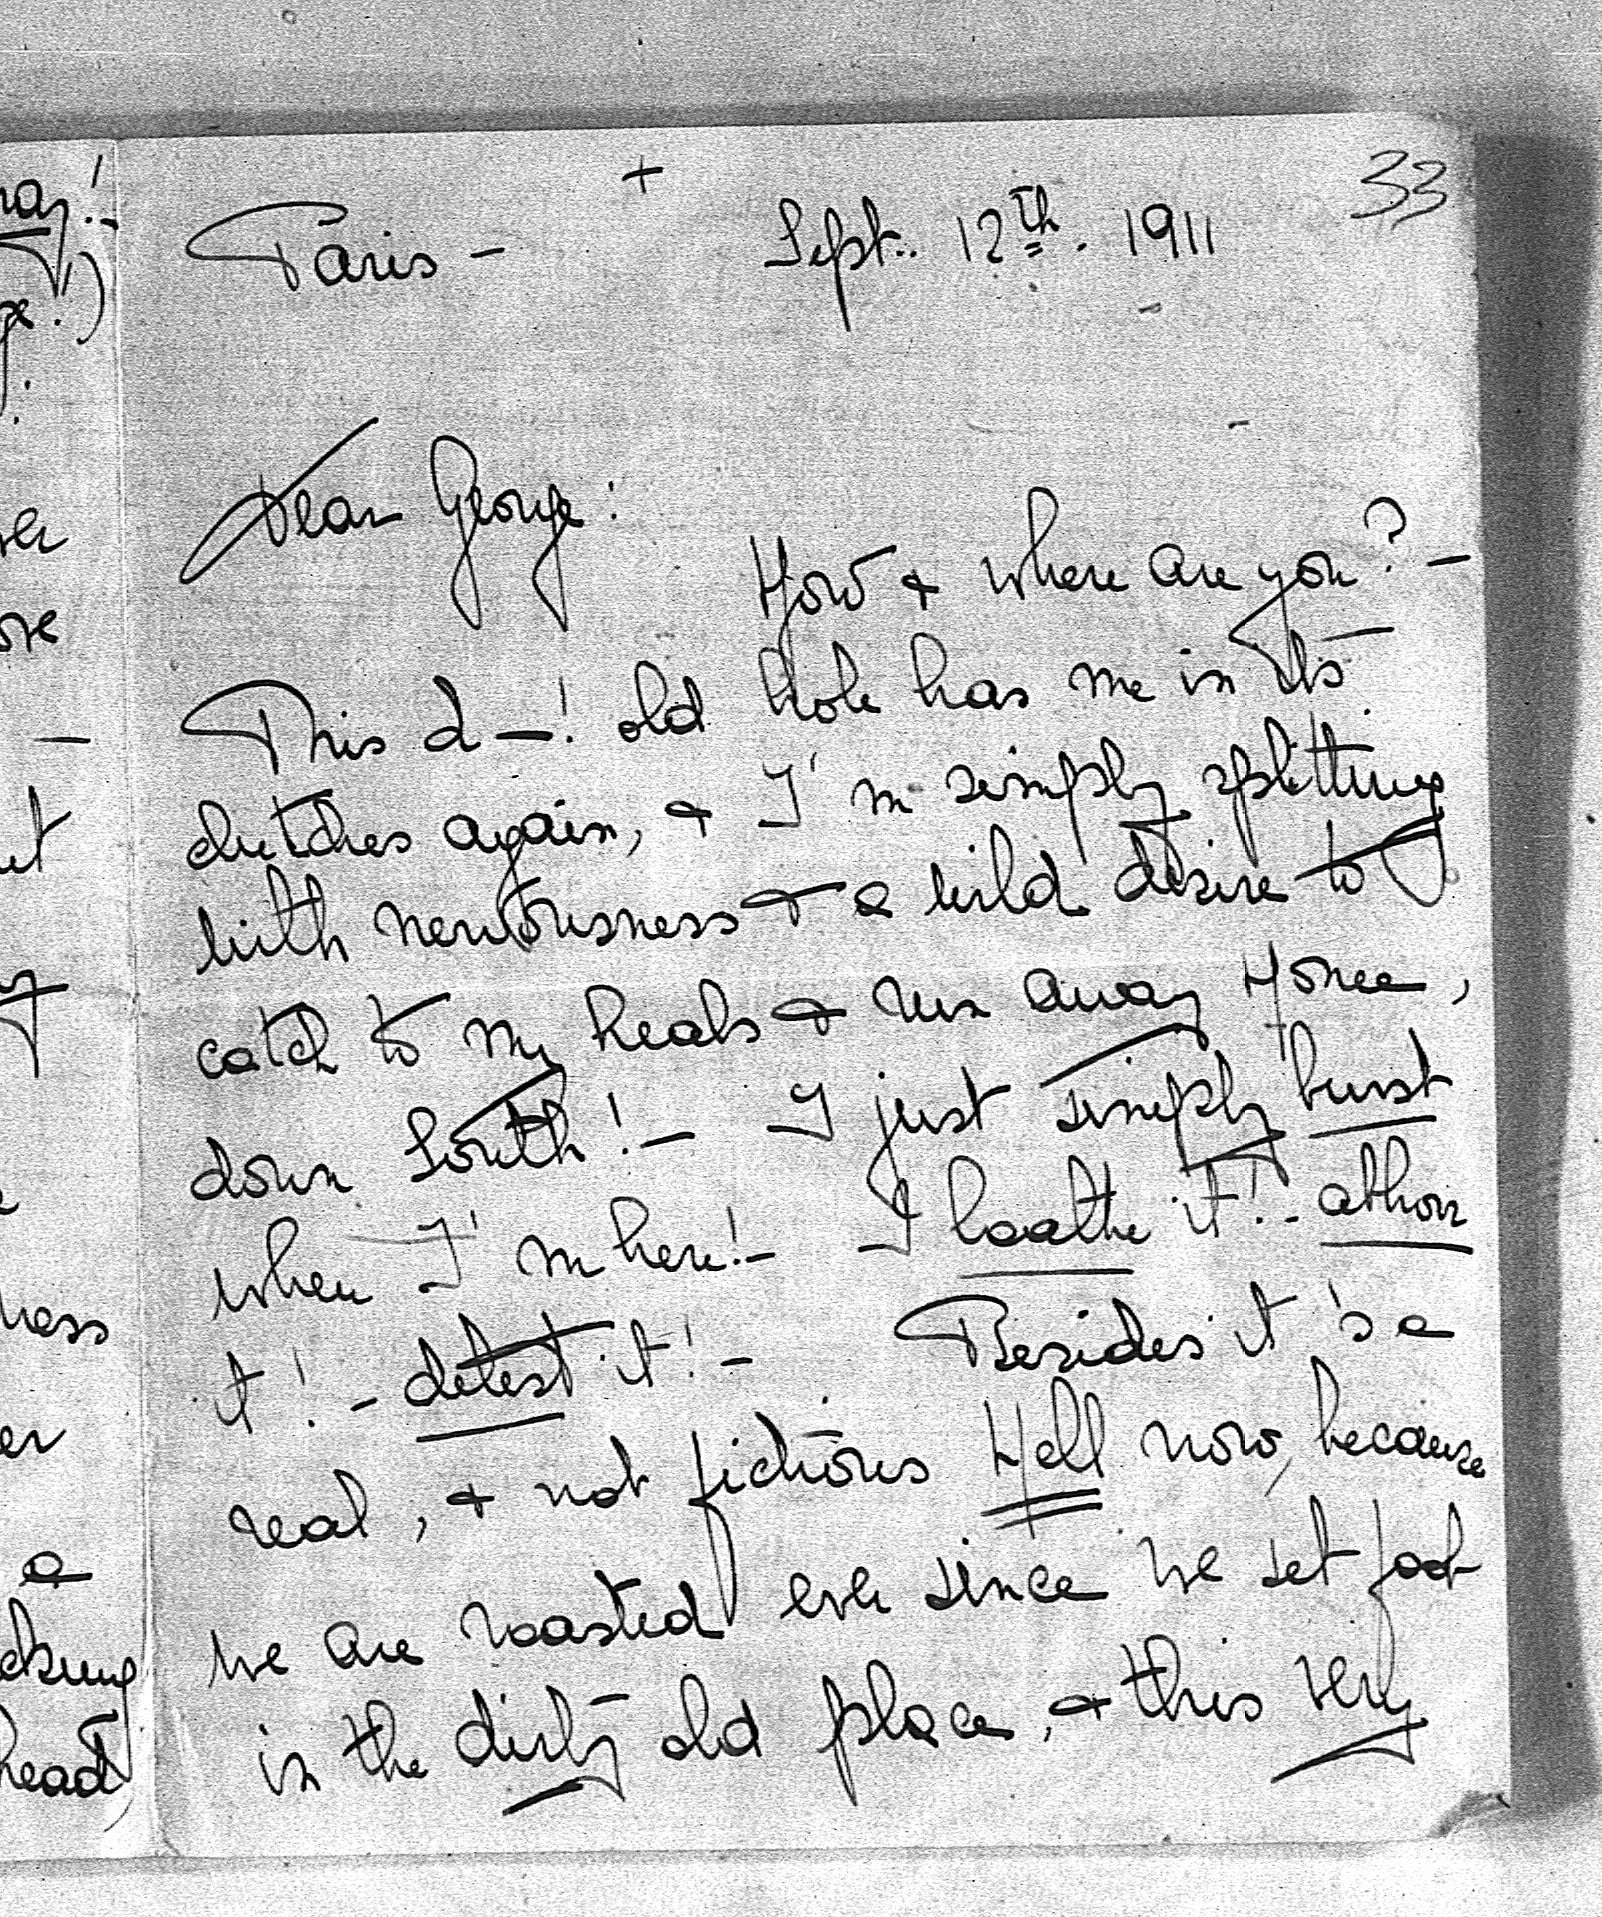 +
33
Paris – Sept. 12th. 1911
Dear George:
How + where are you? –
This d–! old hole has me in its
clutches again, + I'm simply splitting
with nervousness + a wild desire to
catch to my heals + run away Home,
down South! – I just simply burst
when I'm here! – I loathe it! – abhor
it! – detest it! – Besides it's a
real, + not fictious Hell now, because
we are roasted ever since we set foot
in the dirty old place, + this very